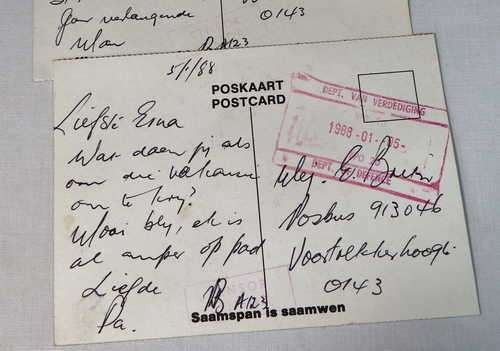 Jou verlangende
Man
A123
0143
5/1/88
POSKAART
POSTCARD
DEPT. VAN VERDEDIGING
1988-01-05-
DEPT. OF DEFENCE
Liefste Erna
Wat doen jy als
om die vakansie
om te kry?
Mooi bly, ek is
al amper op pad
Liefde
Pa.
A123
Mej. E.
Posbus 913046
Voortrekkerhoogte
0143
Saamspan is saamwen